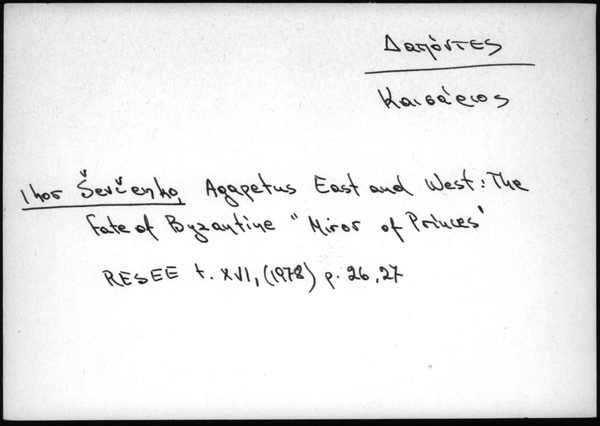 Δαπόντες
Καισάριος
Ihor Ševčenko, Agapetus East and West: The
Fate of Byzantine "Miror of Princes"
RESEE t. XVI, (1978) p. 26, 27